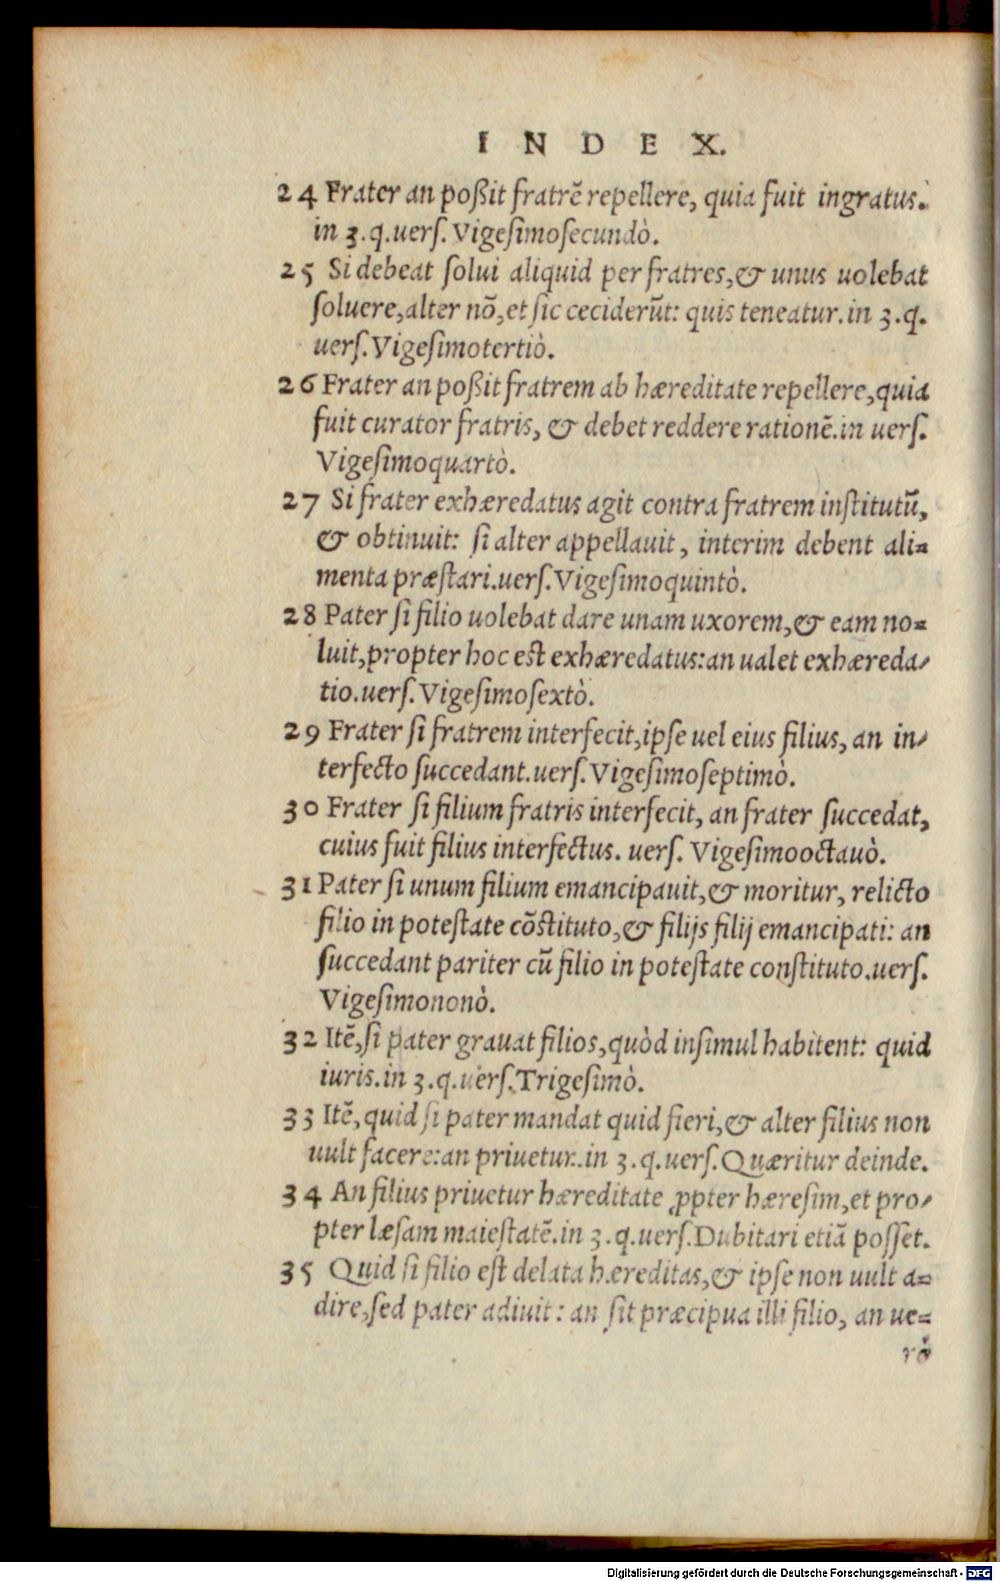 INDEX.
24 Frater an poßit fratrē repellere, quia fuit ingratus.
in 3.q.uerſ.Vigeſimoſecundò.
25 Si debeat ſolui aliquid per fratres,& unus uolebat
ſoluere,alter nō,et ſic ceciderūt: quis teneatur.in 3.q.
uerſ.Vigeſimotertiò.
26 Frater an poßit fratrem ab hæreditate repellere,quia
fuit curator fratris, & debet reddere rationē.in uerſ.
Vigeſimoquartò.
27 Si frater exhæredatus agit contra fratrem inſtitutū,
& obtinuit: ſi alter appellauit, interim debent ali=
menta præſtari.uerſ.Vigeſimoquintò.
28 Pater ſi filio uolebat dare unam uxorem,& eam no=
luit,propter hoc eſt exhæredatus:an ualet exhæreda/
tio.uerſ.Vigeſimoſextò.
29 Frater ſi fratrem interfecit,ipſe uel eius filius, an in/
terfecto ſuccedant.uerſ.Vigeſimoſeptimò.
30 Frater ſi filium fratris interfecit, an frater ſuccedat,
cuius fuit filius interfectus. uerſ. Vigeſimooctauò.
31 Pater ſi unum filium emancipauit,& moritur, relicto
filio in poteſtate cōſtituto,& filijs filij emancipati: an
ſuccedant pariter cū filio in poteſtate conſtituto.uerſ.
Vigeſimononò.
32 Itē,ſi pater grauat filios,quòd inſimul habitent: quid
iuris.in 3.q.uerſ.Trigeſimò.
33 Itē,quid ſi pater mandat quid fieri,& alter filius non
uult facere:an priuetur.in 3.q.uerſ.Quæritur deinde.
34 An filius priuetur hæreditate ꝓpter hæreſim,et pro/
pter læſam maieſtatē.in 3.q.uerſ.Dubitari etiā poſſet.
35 Quid ſi filio eſt delata hæreditas,& ipſe non uult a=
dire,ſed pater adiuit: an ſit præcipua illi filio, an ue=
rò
Digitalisierung gefördert durch die Deutsche Forschungsgemeinschaft - DFG